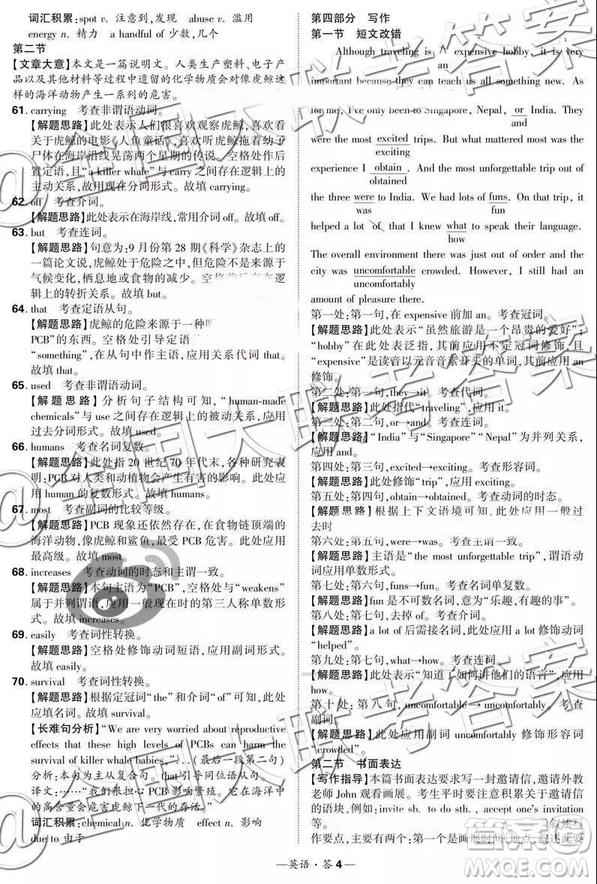 词汇积累:spot v. 注意到,发现 abuse v. 滥用
energy n. 精力 a handful of 少数,几个
第二节
【文章大意】本文是一篇说明文。人类生产塑料、电子产
品以及其他材料等过程中遗留的化学物质会对像虎鲸这样
的海洋动物产生一系列的危害。
61. carrying 考查非谓语动词。
【解题思路】此处表示人们很喜欢观察虎鲸,喜欢看
关于虎鲸的电影《人鱼童话》,关于虎鲸拖着幼子
尸体在海岸沿线晃荡两个星期的传说。空格处作后
置定语,且“a killer whale”与 carry 之间存在逻辑上的
主动关系,应用现在分词形式。故填 carrying。
62. off 考查介词。
【解题思路】此处表示在海岸线,常用介词 off。故填 off。
63. but 考查连词。
【解题思路】句意为:9 月份第 28 期《科学》杂志上的
一篇论文说,虎鲸处于危险之中,但不是因为气候
变化,栖息地或食物的减少。空格处存在逻辑上
的转折关系。故填 but。
64. that 考查定语从句。
【解题思路】虎鲸的危险来源于一种
PCB”的东西。空格处引导定语
“something”,在从句中作主语,应用关系代词 that。
故填 that。
65. used 考查非谓语动词。
【解题思路】分析句子结构可知,“human-made
chemicals”与 use 之间存在逻辑上的被动关系,应用
过去分词形式。故填 used。
66. humans 考查名词复数。
【解题思路】此处指 20 世纪 70 年代末,各种研究表
明:PCB 对人类和动植物有严重的影响。此处应
用 human 的复数形式。故填 humans。
67. most 考查副词的比较等级。
【解题思路】PCB 现象还依然存在,在食物链顶端的
海洋动物,像虎鲸和鲨鱼,最受 PCB 的危害。应用
最高级形式。故填 most。
68. increases 考查动词的时态和主谓一致。
【解题思路】本句主语为“PCB”,空格处与“weakens”
属于并列谓语,此处应用一般现在时的第三人称单数形
式。故填 increases。
69. easily 考查词性转换。
【解题思路】空格处修饰动词短语,应用副词形式。
故填 easily。
70. survival 考查词性转换。
【解题思路】根据定冠词“the”和介词“of”可知,此处
应填名词。故填 survival。
【长难句分析】“We are very worried about reproductive
effects that these high levels of PCBs can have on the
survival of killer whale babies,”…(最后一段第二句)
分析:本句为主从复合句。that 引导定语从句,修饰
先行词 effects,且在从句中作宾语。
译文:……“我们很担心高含量的
高含量会危害虎鲸下一代的存活。”
词汇积累:chemical n. 化学物质 effect n. 影响
due to 由于
第四部分 写作
第一节 短文改错
Although traveling is ∧ expensive hobby, it is very
an
because they can teach us all something new. As
it
for me, I've only been to Singapore, Nepal, or India. They
and
were the most excited trips. But what mattered most was the
exciting
experience I obtain. And the most unforgettable trip out of
obtained
the three were to India. We had lots of funs. On that trip, it
was fun
helped a lot of when we know what to speak their language.
how
The overall environment there was just out of order and the
city was uncomfortable crowded. However, I still had an
uncomfortably
amount of pleasure there.
第一处:第一句,在 expensive 前加 an。考查冠词。
【解题思路】此处表示“虽然旅游是一个昂贵的爱好”,
“hobby”在此表示泛指,应用不定冠词修饰,且
“expensive”是读音以元音音素开头的单词,其前应用 an
修饰。
第二处:第一句,they→it。考查代词。
【解题思路】此处指代“traveling”,应用 it。
第三处:第二句,or→and。考查连词。
【解题思路】“India”与“Singapore”“Nepal”为并列关系,
应用 and。
第四处:第三句,excited→exciting。考查形容词。
【解题思路】修饰“trip”,应用 exciting。
第五处:第四句,obtain→obtained。考查动词的时态。
【解题思路】根据上下文语境可知,此处应用一般过
去时
第六处:第五句,were→was。考查主谓一致。
【解题思路】主语是“the most unforgettable trip”,谓语
动词应用单数形式。
第七处:第六句,funs→fun。考查名词单复数。
【解题思路】fun 是不可数名词,意为“乐趣,有趣的事”。
第八处:第七句,去掉 of。考查介词。
【解题思路】a lot of 后需接名词,此处应用副词修饰
“helped”。
第九处:第七句,what→how。考查连词。
【解题思路】此处表示“知道了如何讲他们的语言”,应
用 how。
第十处:第八句,uncomfortable→uncomfortably。
考查副词。
【解题思路】空格处修饰形容词,应用副词形式修饰
“crowded”。
第二节 书面表达
【写作指导】本篇书面表达要求写一封邀请信,邀请外教
老师 John 观看画展。考生平时要注意积累关于邀请信
的语块,例如:invite sb. to do sth.,accept one's invitation
等。
作要点,主要有
—英语·答 4—
@全国大联考答案
答案圈
MXQE.COM